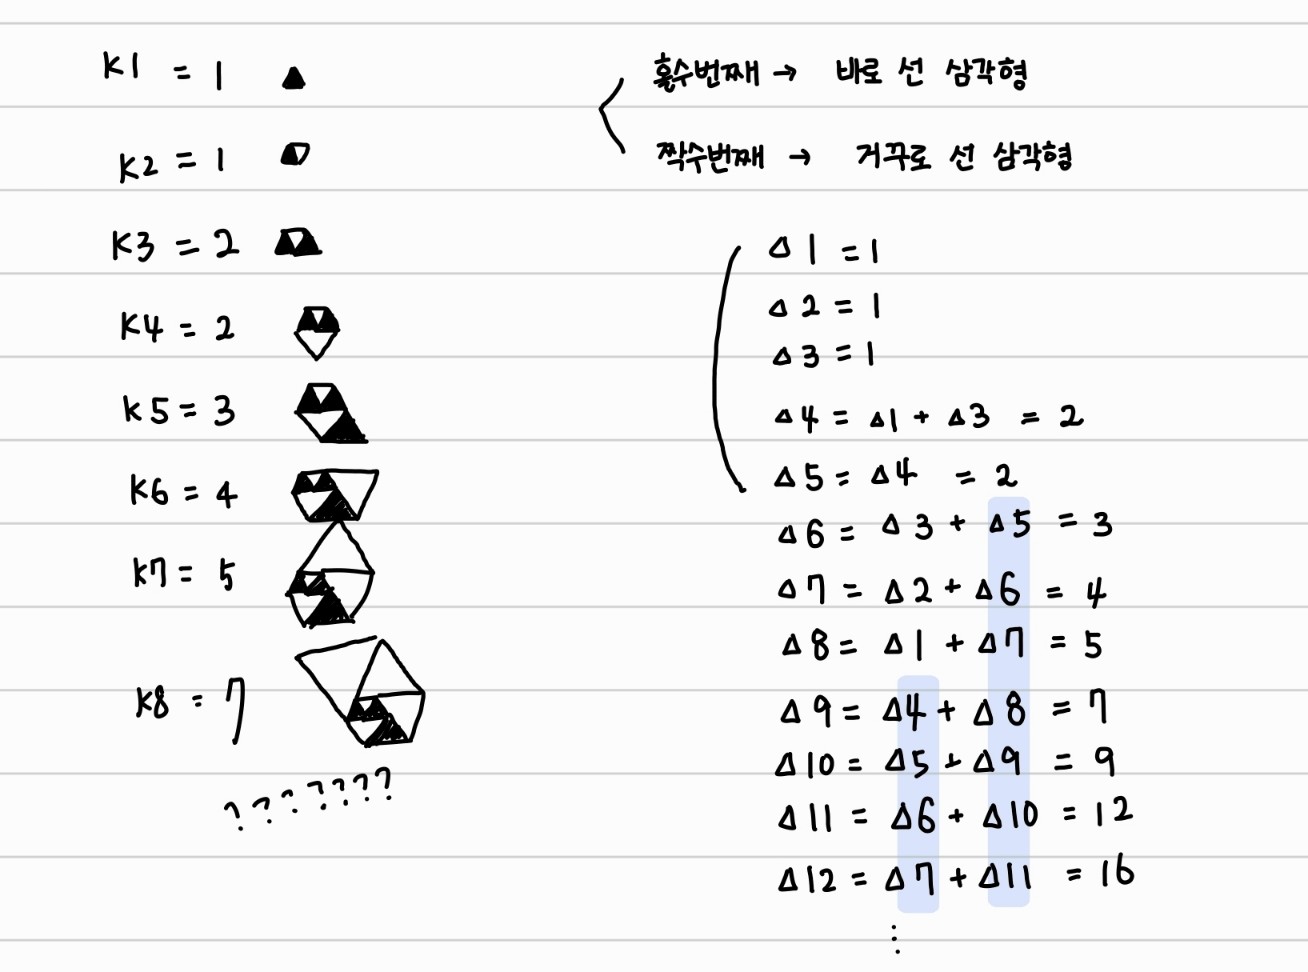 K1 = 1
K2 = 1
K3 = 2
K4 = 2
K5 = 3
K6 = 4
K7 = 5
K8 = 7
???????
홀수번째 → 바로 선 삼각형
짝수번째 → 거꾸로 선 삼각형
△1 = 1
△2 = 1
△3 = 1
△4 = △1 + △3 = 2
△5 = △4 = 2
△6 = △3 + △5 = 3
△7 = △2 + △6 = 4
△8 = △1 + △7 = 5
△9 = △4 + △8 = 7
△10 = △5 + △9 = 9
△11 = △6 + △10 = 12
△12 = △7 + △11 = 16
⋮